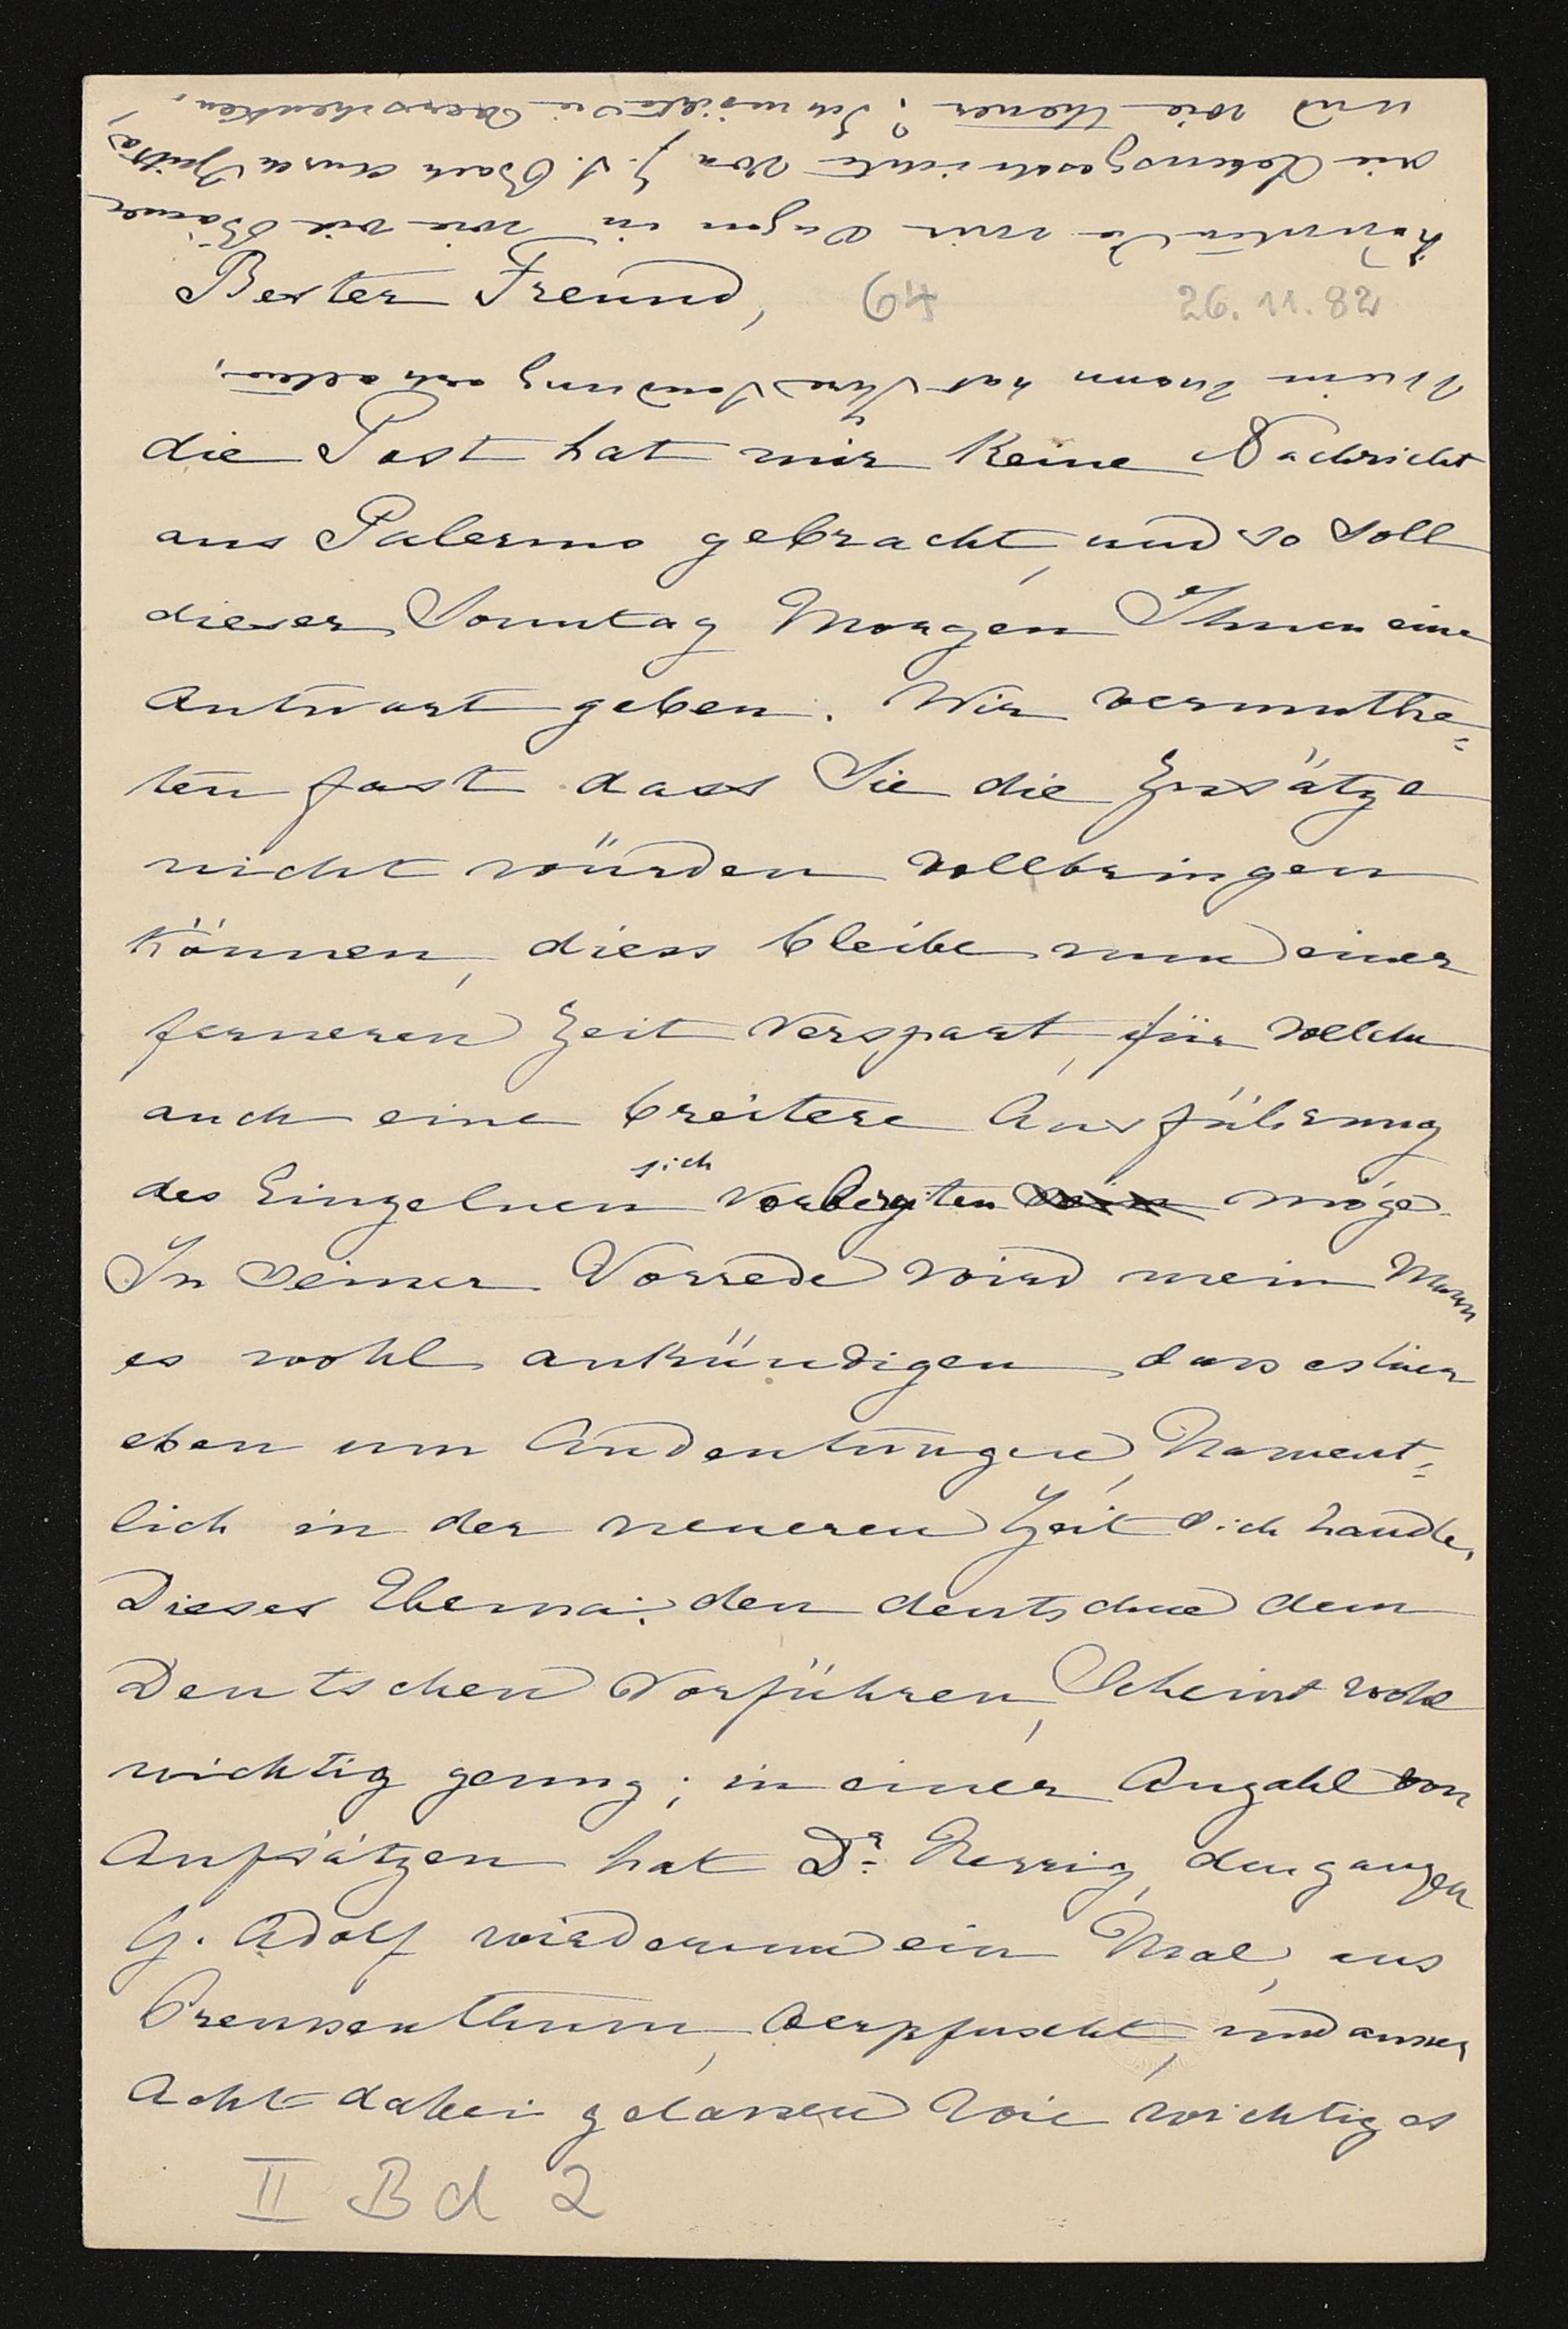 Bester Freund, 64 26. 11. 82
die Post hat mir keine Nachricht
aus Palermo gebracht, und so soll
dieser Sonntag Morgen Ihnen eine
Antwort geben. Wir vermuthe=
ten fast dass Sie die Zusätze
nicht würden vollbringen
können, diess bleibe nun einer
ferneren Zeit verspart, für welche
auch eine breitere Ausführung
des Einzelnen sich vorbereiten möge.
In seiner Vorrede wird mein Mann
es wohl ankündigen dass es hier
eben um Andeutungen, Nament=
lich in der neueren Zeit sich handle.
Dieses Thema: den deutschen dem
Deutschen vorführen, scheint wohl
wichtig genug; in einer Anzahl von
Aufsätzen hat Dr. Herrig, den ganzen
G. Adolf wiederum ein Mal, aus
Preussenthum, verpfuscht, und ausser
Acht dabei gelassen wie wichtig es
II Bd 2
Mein Mann hat Ihre Sendung erhalten.
Könnten Sie mir sagen in wie viel Bände
die Lebensgeschichte von J. S. Bach durch Spitta,
und wie theuer? Ich möchte sie verschenken.